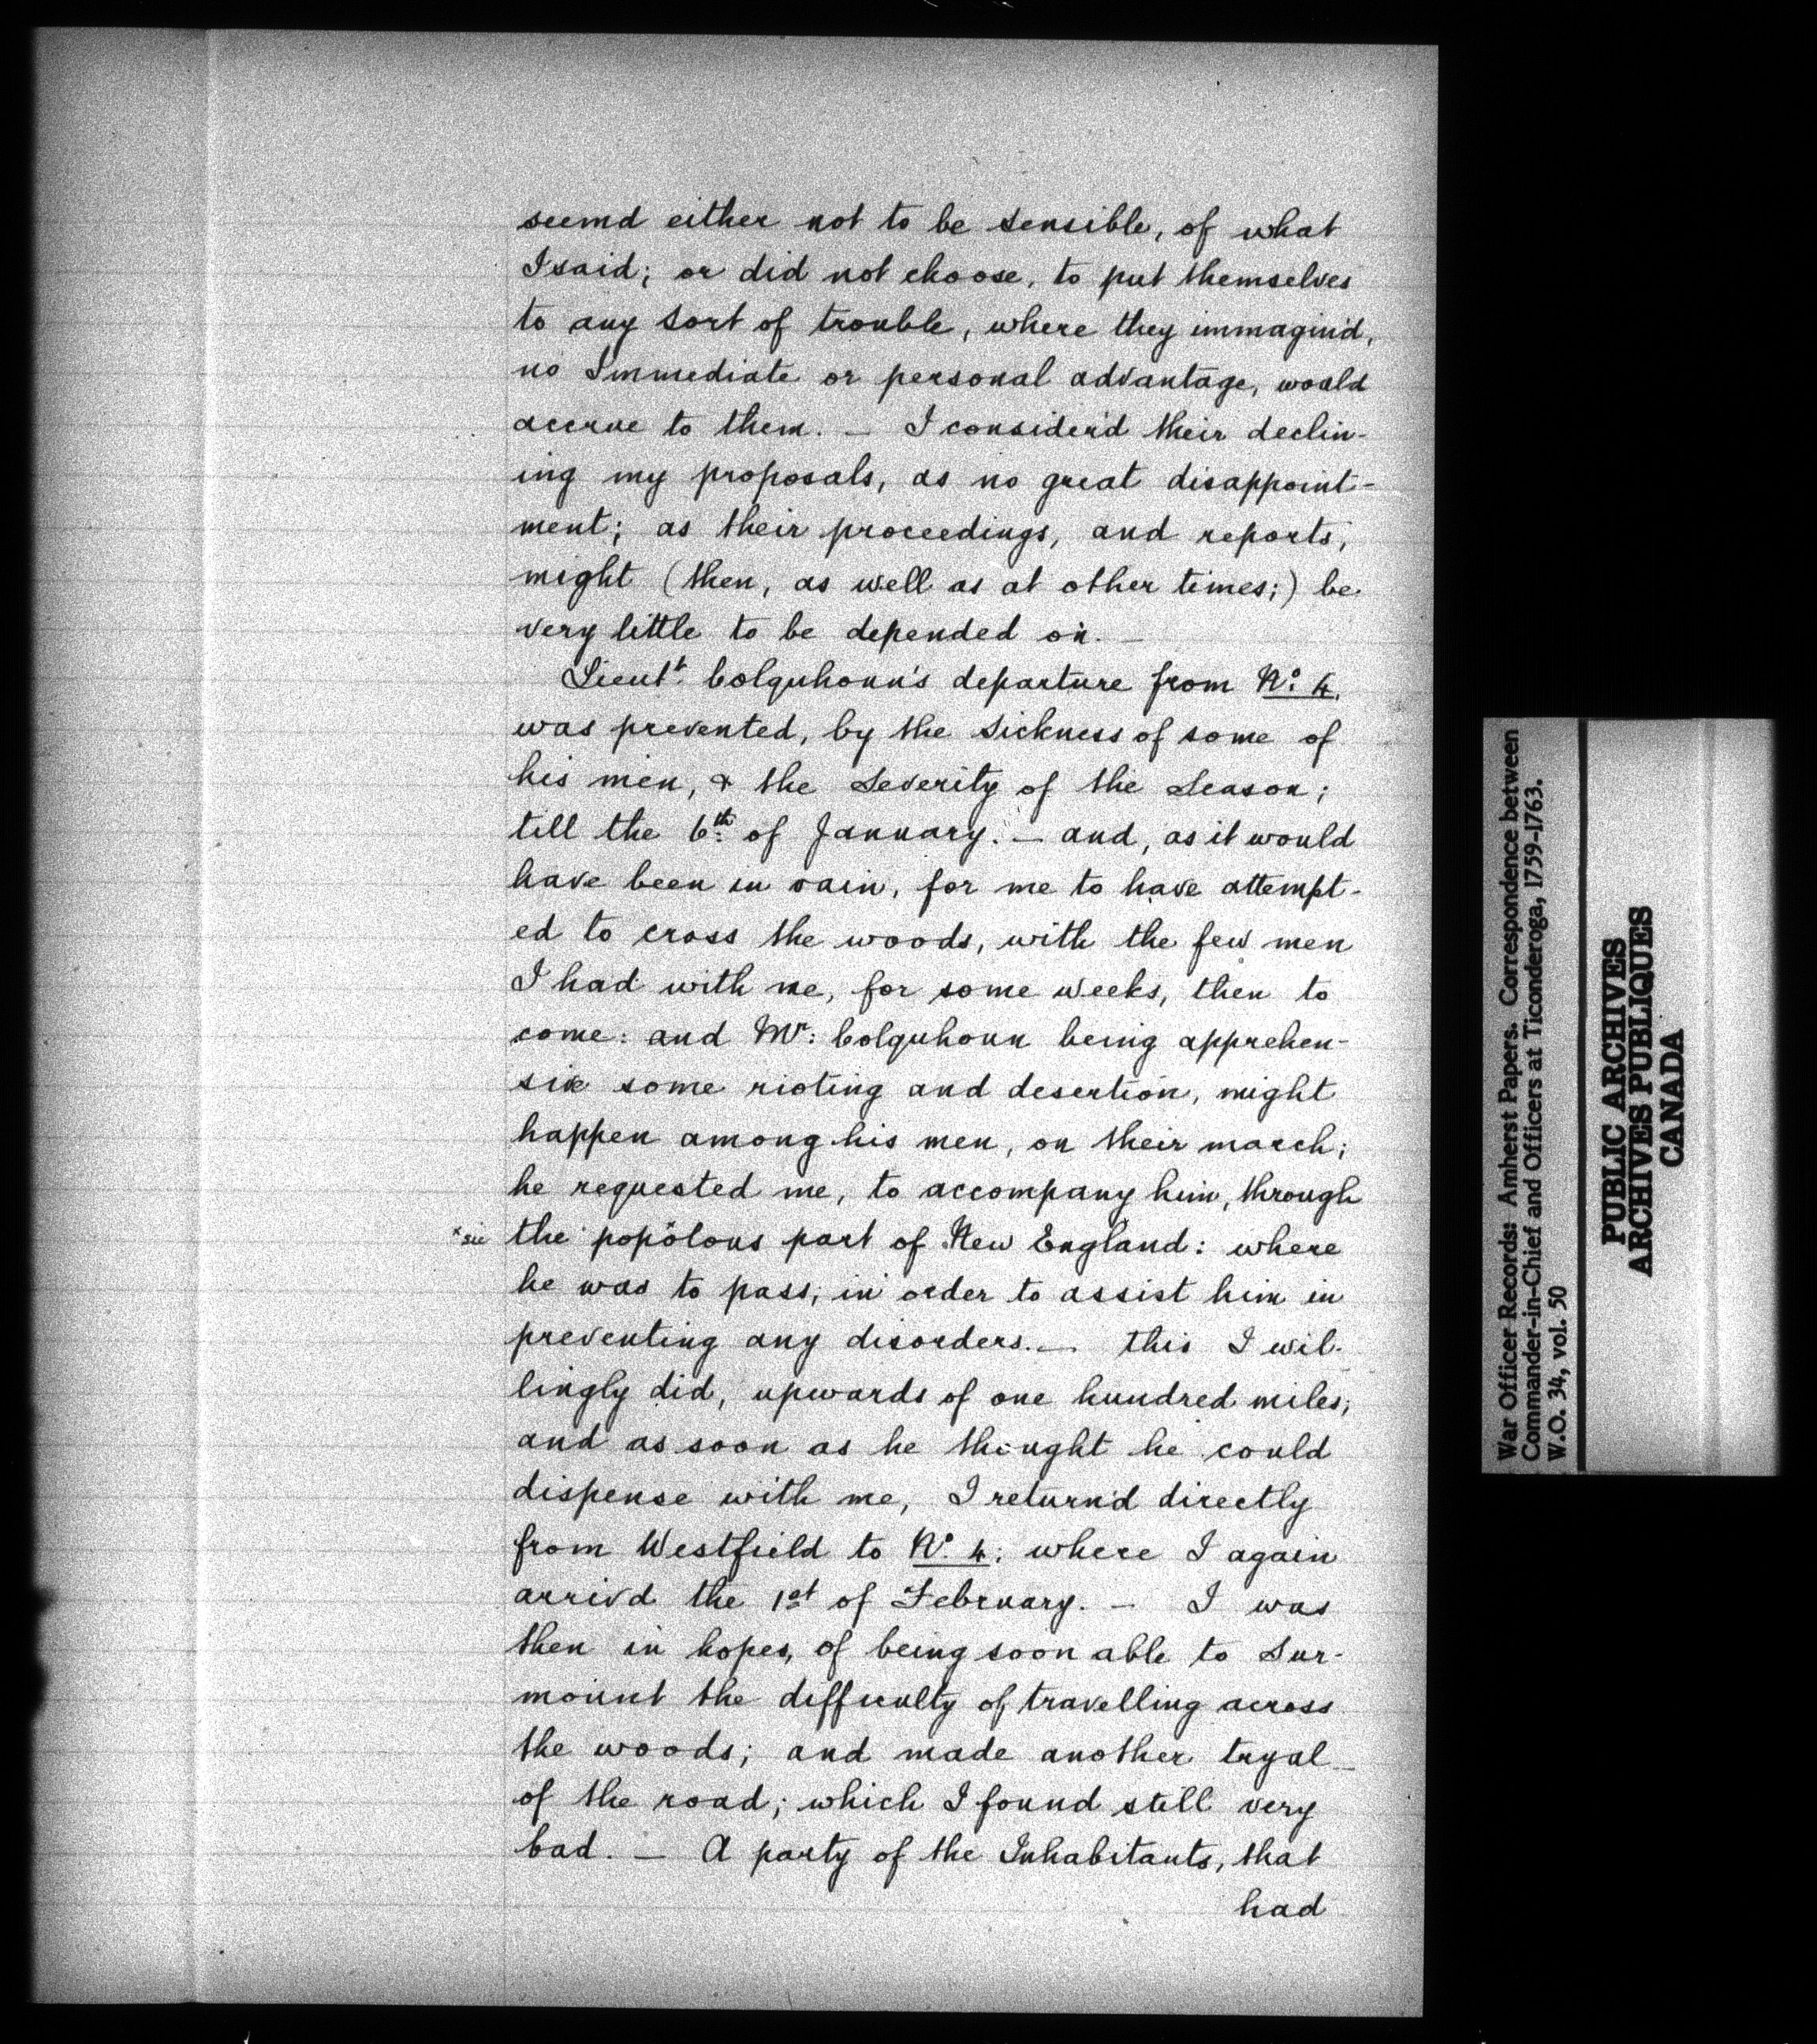 seemd either not to be sensible, of what
I said; or did not choose, to put themselves
to any sort of trouble, where they immagin'd,
no Immediate or personal advantage, would
accrue to them. — I consider'd their declin-
ing my proposals, as no great disappoint-
ment; as their proceedings, and reports,
might (then, as well as at other times;) be
very little to be depended on. —
Lieut.t Colquhoun's departure from No. 4.
was prevented, by the Sickness of some of
his men, & the Severity of the Season;
till the 6th of January. — and, as it would
have been in vain, for me to have attempt-
ed to cross the woods, with the few men
I had with me, for some weeks, then to
come: and Mr: Colquhoun being apprehen-
sive some rioting and desertion, might
happen among his men, on their march;
he requested me, to accompany him, through
x sic the popòlous part of New England: where
he was to pass, in order to assist him in
preventing any disorders. — this I wil-
lingly did, upwards of one hundred miles;
and as soon as he thought he could
dispense with me, I return'd directly
from Westfield to No. 4: where I again
arriv'd the 1st of February. — I was
then in hopes, of being soon able to Sur-
mount the difficulty of travelling across
the woods; and made another tryal
of the road; which I found still very
bad. — A party of the Inhabitants, that
had
War Officer Records: Amherst Papers. Correspondence between
Commander-in-Chief and Officers at Ticonderoga, 1759-1763.
W.O. 34, vol. 50
PUBLIC ARCHIVES
ARCHIVES PUBLIQUES
CANADA